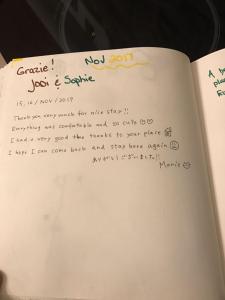 Grazie!
Nov 2017
Jodi & Sophie
15, 16 / NOV / 2017
Thank you very much for nice stay!!
Everything was comfortable and so cute
I had a very good time thanks to your place
I hope I can come back and stay here again
ありがとうございました!!
A
pla